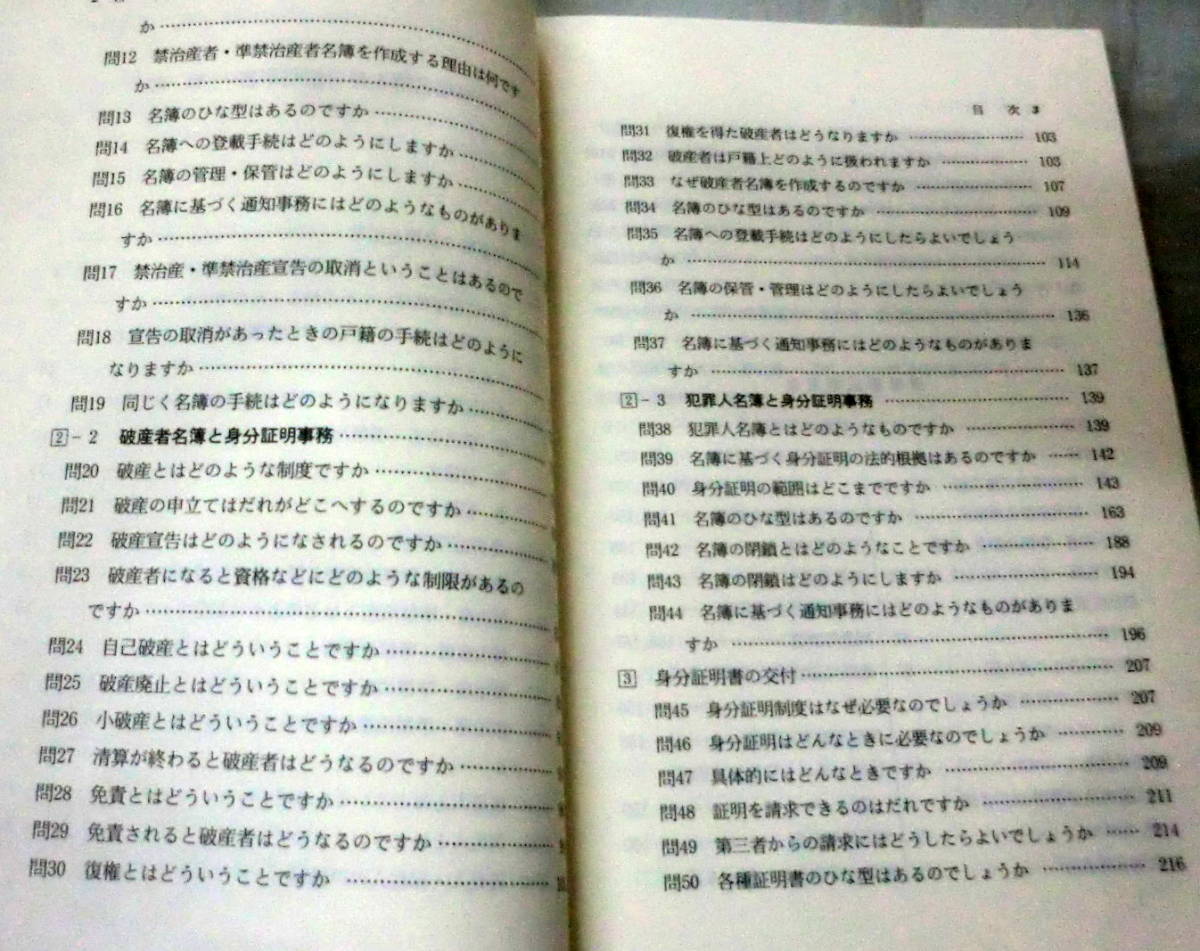 か……………………
問12 禁治産者・準禁治産者名簿を作成する理由は何です
か……………………
問13 名簿のひな型はあるのですか……………………
問14 名簿への登載手続はどのようにしますか……………
問15 名簿の管理・保管はどのようにしますか……………
問16 名簿に基づく通知事務にはどのようなものがありま
すか……………………
問17 禁治産・準禁治産宣告の取消ということはあるので
すか……………………
問18 宣告の取消があったときの戸籍の手続はどのように
なりますか……………………
問19 同じく名簿の手続はどのようになりますか…………
2-2 破産者名簿と身分証明事務……………………
問20 破産とはどのような制度ですか……………………
問21 破産の申立てはだれがどこへするのですか…………
問22 破産宣告はどのようになされるのですか……………
問23 破産者になると資格などにどのような制限があるの
ですか……………………
問24 自己破産とはどういうことですか……………………
問25 破産廃止とはどういうことですか……………………
問26 小破産とはどういうことですか……………………
問27 清算が終わると破産者はどうなるのですか…………
問28 免責とはどういうことですか……………………
問29 免責されると破産者はどうなるのですか……………
問30 復権とはどういうことですか ……………………
目次 3
問31 復権を得た破産者はどうなりますか …………… 103
問32 破産者は戸籍上どのように扱われますか ………… 103
問33 なぜ破産者名簿を作成するのですか …………… 107
問34 名簿のひな型はあるのですか …………………… 109
問35 名簿への登載手続はどのようにしたらよいでしょう
か …………………… 114
問36 名簿の保管・管理はどのようにしたらよいでしょう
か …………………… 136
問37 名簿に基づく通知事務にはどのようなものがありま
すか …………………… 137
2-3 犯罪人名簿と身分証明事務 …………………… 139
問38 犯罪人名簿とはどのようなものですか ………… 139
問39 名簿に基づく身分証明の法的根拠はあるのですか …… 142
問40 身分証明の範囲はどこまでですか …………… 143
問41 名簿のひな型はあるのですか …………………… 163
問42 名簿の閉鎖とはどのようなことですか ………… 188
問43 名簿の閉鎖はどのようにしますか …………… 194
問44 名簿に基づく通知事務にはどのようなものがありま
すか …………………… 196
3 身分証明書の交付…………………… 207
問45 身分証明制度はなぜ必要なのでしょうか ………… 207
問46 身分証明はどんなときに必要なのでしょうか ……… 209
問47 具体的にはどんなときですか …………………… 209
問48 証明を請求できるのはだれですか …………… 211
問49 第三者からの請求にはどうしたらよいでしょうか …… 214
問50 各種証明書のひな型はあるのでしょうか ………… 216